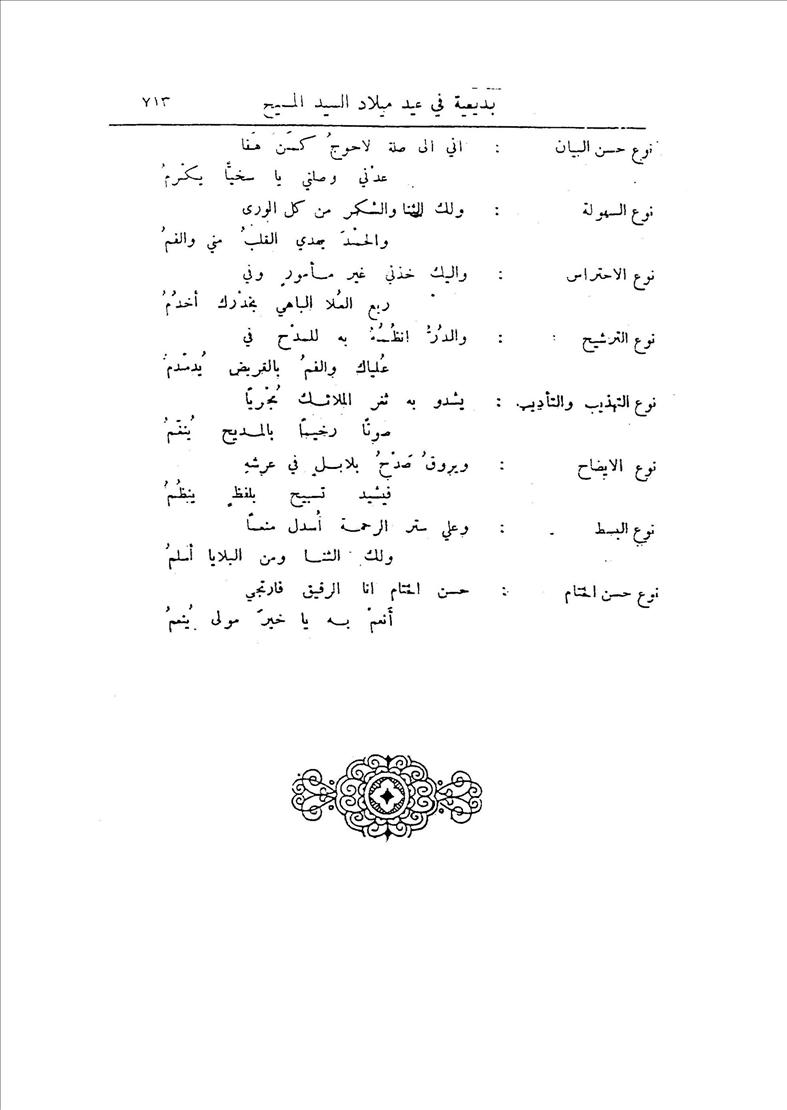 بديعية في عيد ميلاد السيد المسيح ٧١٣
نوع حسن البيان : اني الى صلة لاحوجُ كمَن هَفا
عدْني وصلني يا سخيًّا يكْرمُ
نوع السهولة : ولك الثنا والشكر من كل الورى
والحمْدَ يهدي القلبُ مني والفمُ
نوع الاحتراس : واليك خذني غير مأمورٍ وني
ربع العُلا الباهي بخدْرك أخدُمُ
نوع الترشيح : والدُرُّ انظُمُهُ به للمدْح في
عُلياك والفمُ بالقريض يُدمْدمُ
نوع التهذيب والتأديب : يشدو به ثغر الملائك مُجْريًا
صوتًا رخيمًا بالمديح يُنغّمُ
نوع الايضاح : ويروقُ صَدْحُ بلابلٍ في عرشهِ
فيشيد تسبيح بلفظٍ ينظُمُ
نوع البسط : وعلي ستر الرحمة أسدل منعمًا
ولك الثنا ومن البلايا أسلمُ
نوع حسن الختام : حسن الختام انا الرقيق فارتجي
أَنعمْ به يا خيرَ مولى يُنعمُ